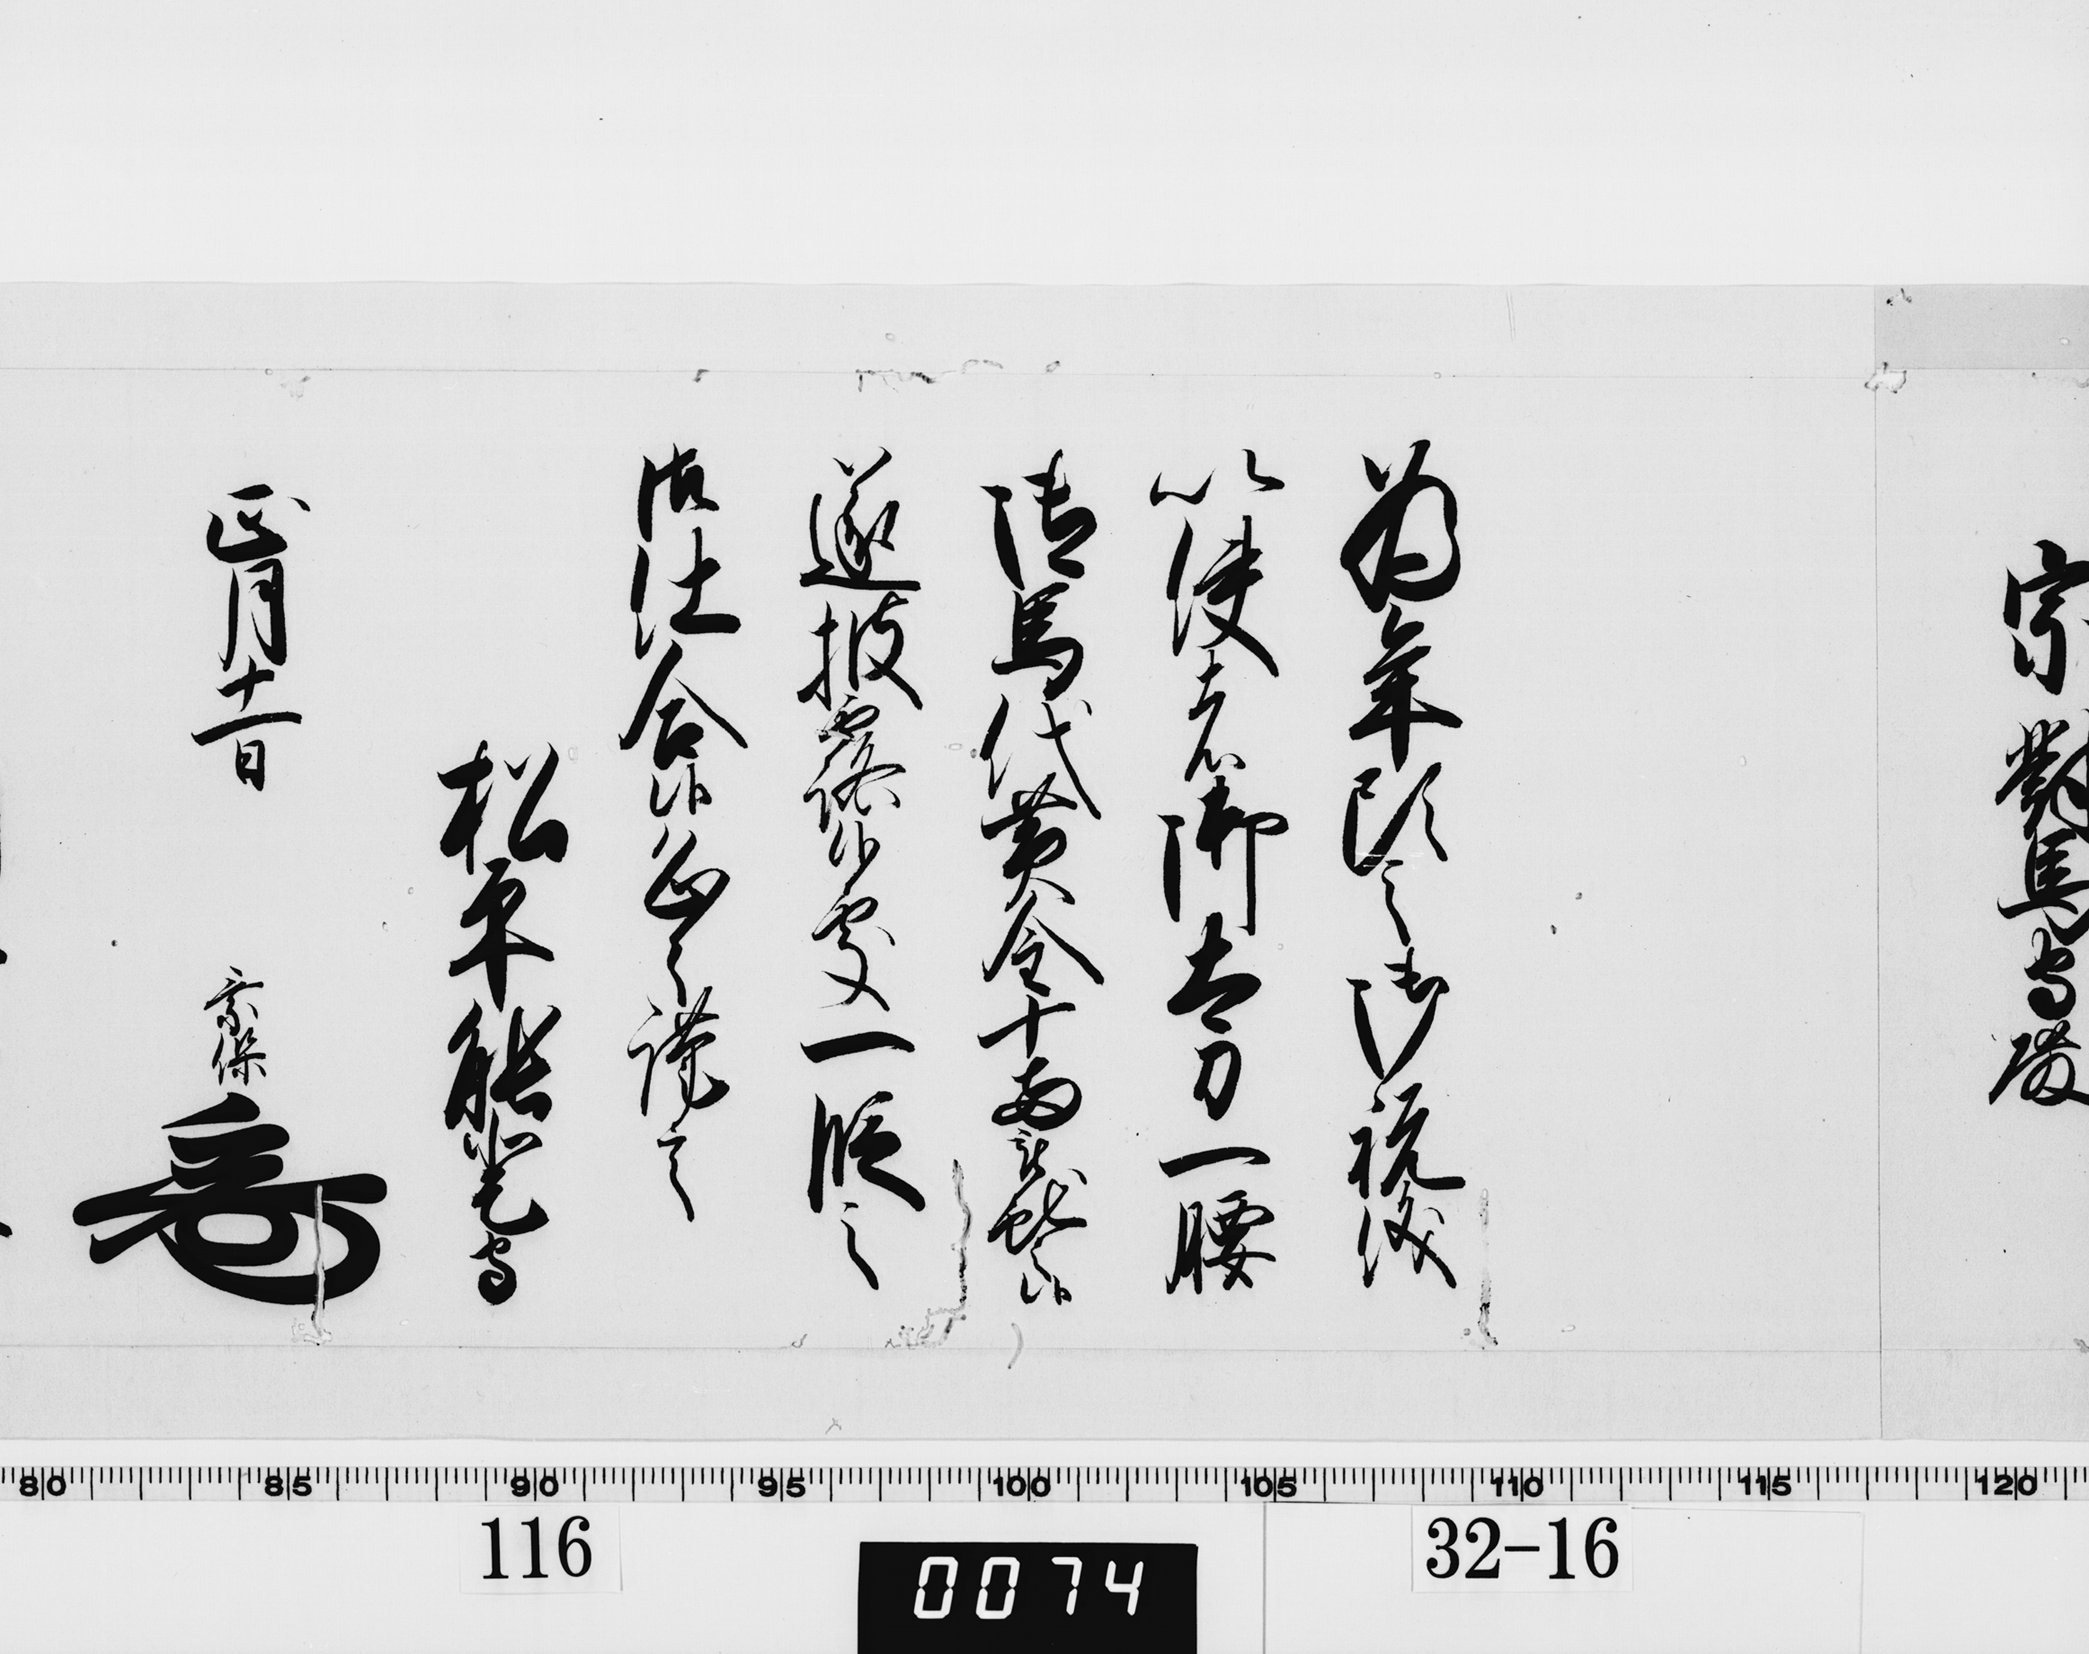 宗對馬守殿
為年頭之御祝儀
以使者御太刀一腰
御馬代黄金十両被獻候
遂披露候處一段之
御仕合候恐々謹言
松平能登守
正月十一日
乗保
80 85 90 95 100 105 110 115 120
116
0074
32-16